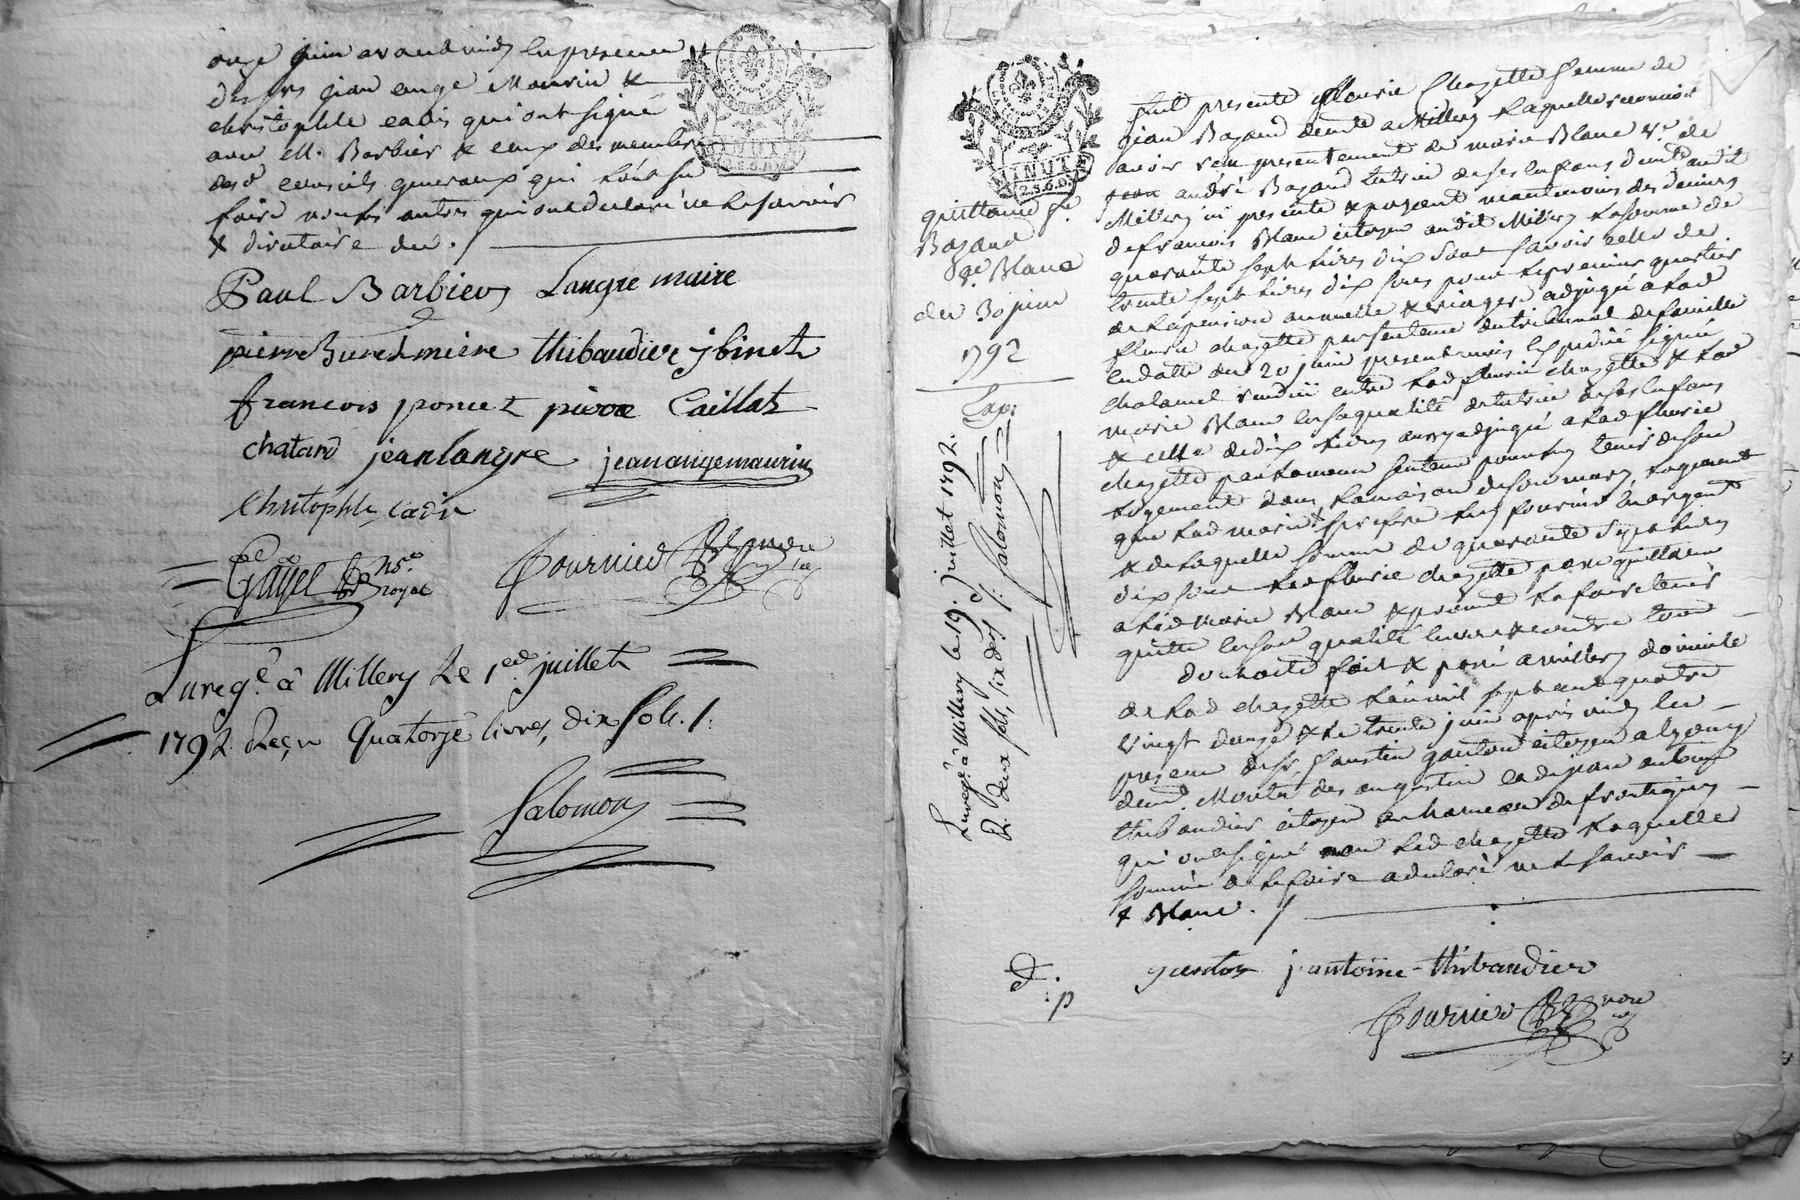 onze juin avant midy en presence
des srs jean ange Maurin &
christophle cadis qui ont signé
avec M. Barbier & ceux des membres
des d. conseils generaux qui l'ont su
faire non les autres qui ont declaré ne le savoir
& diratoire der ./
Paul Barbier Langre maire
pierre mière thibaudier jbinet
francois poncet pierre Caillat
chatard jean langre jean ange maurin
Christophle cadis
Gayet royal
fournier
Enregé. à Millery Le 1er juillet
1792. Reçu Quatorze livres, dix sols ./.
Salomon
MINUT
2.S.6.D.
quittance fe.
Bazand
Blanc
du 30 juin
1792
Exp:
Enregé. à Millery le 19. juillet 1792.
R. deux sols, six ders ./. Salomon
fut presente fleurie Chazette femme de
jean Bazand demte a Millery laquelle reconnoit
avoir reçu presentement de marie Blanc ve. de
andré Bazand tutrice de ses enfans demte audit
Millery ici presente & payant maintenois des deniers
de francois Blanc citoyen audit Millery la somme de
quarante sept livres dix sous savoir celle de
trente sept livres dix sous pour le premier quartier
de la pension annuelle & viagere adjugé a lad
fleurie chazette par sentence du tribunal de famille
en datte du 20 juin present mois Expedié signé
chatanel rendue entre lad fleurie chazette & lad
marie Blanc en sa qualité de tutrice de ses enfans
& celle de dix livres aussy adjugé a lad fleurie
chazette par la meme sentence pour luy tenir de son
logement dans la maison de son mary logement
que lad marie luy fournir en argent
& de laquelle somme de quarante sept livres
dix sous lad fleurie chazette passe quittance
a lad marie Blanc & promet la faire tenir
quitte en son qualité envers & contre tous
dont acte fait & passé a millery domicile
de lad chazette l'an mil sept cent quatre
vingt douze & le trente juin après midy en
presence de sr. faustin gantou citoyen a lyon y
demt. Montée des augustin & de jean antoine
thibaudier citoyen au hameau de frontigny
qui ont signé non lad chazette laquelle
sommée de le faire a declaré ne le savoir
& Blanc ./
j antoine thibaudier
fournier